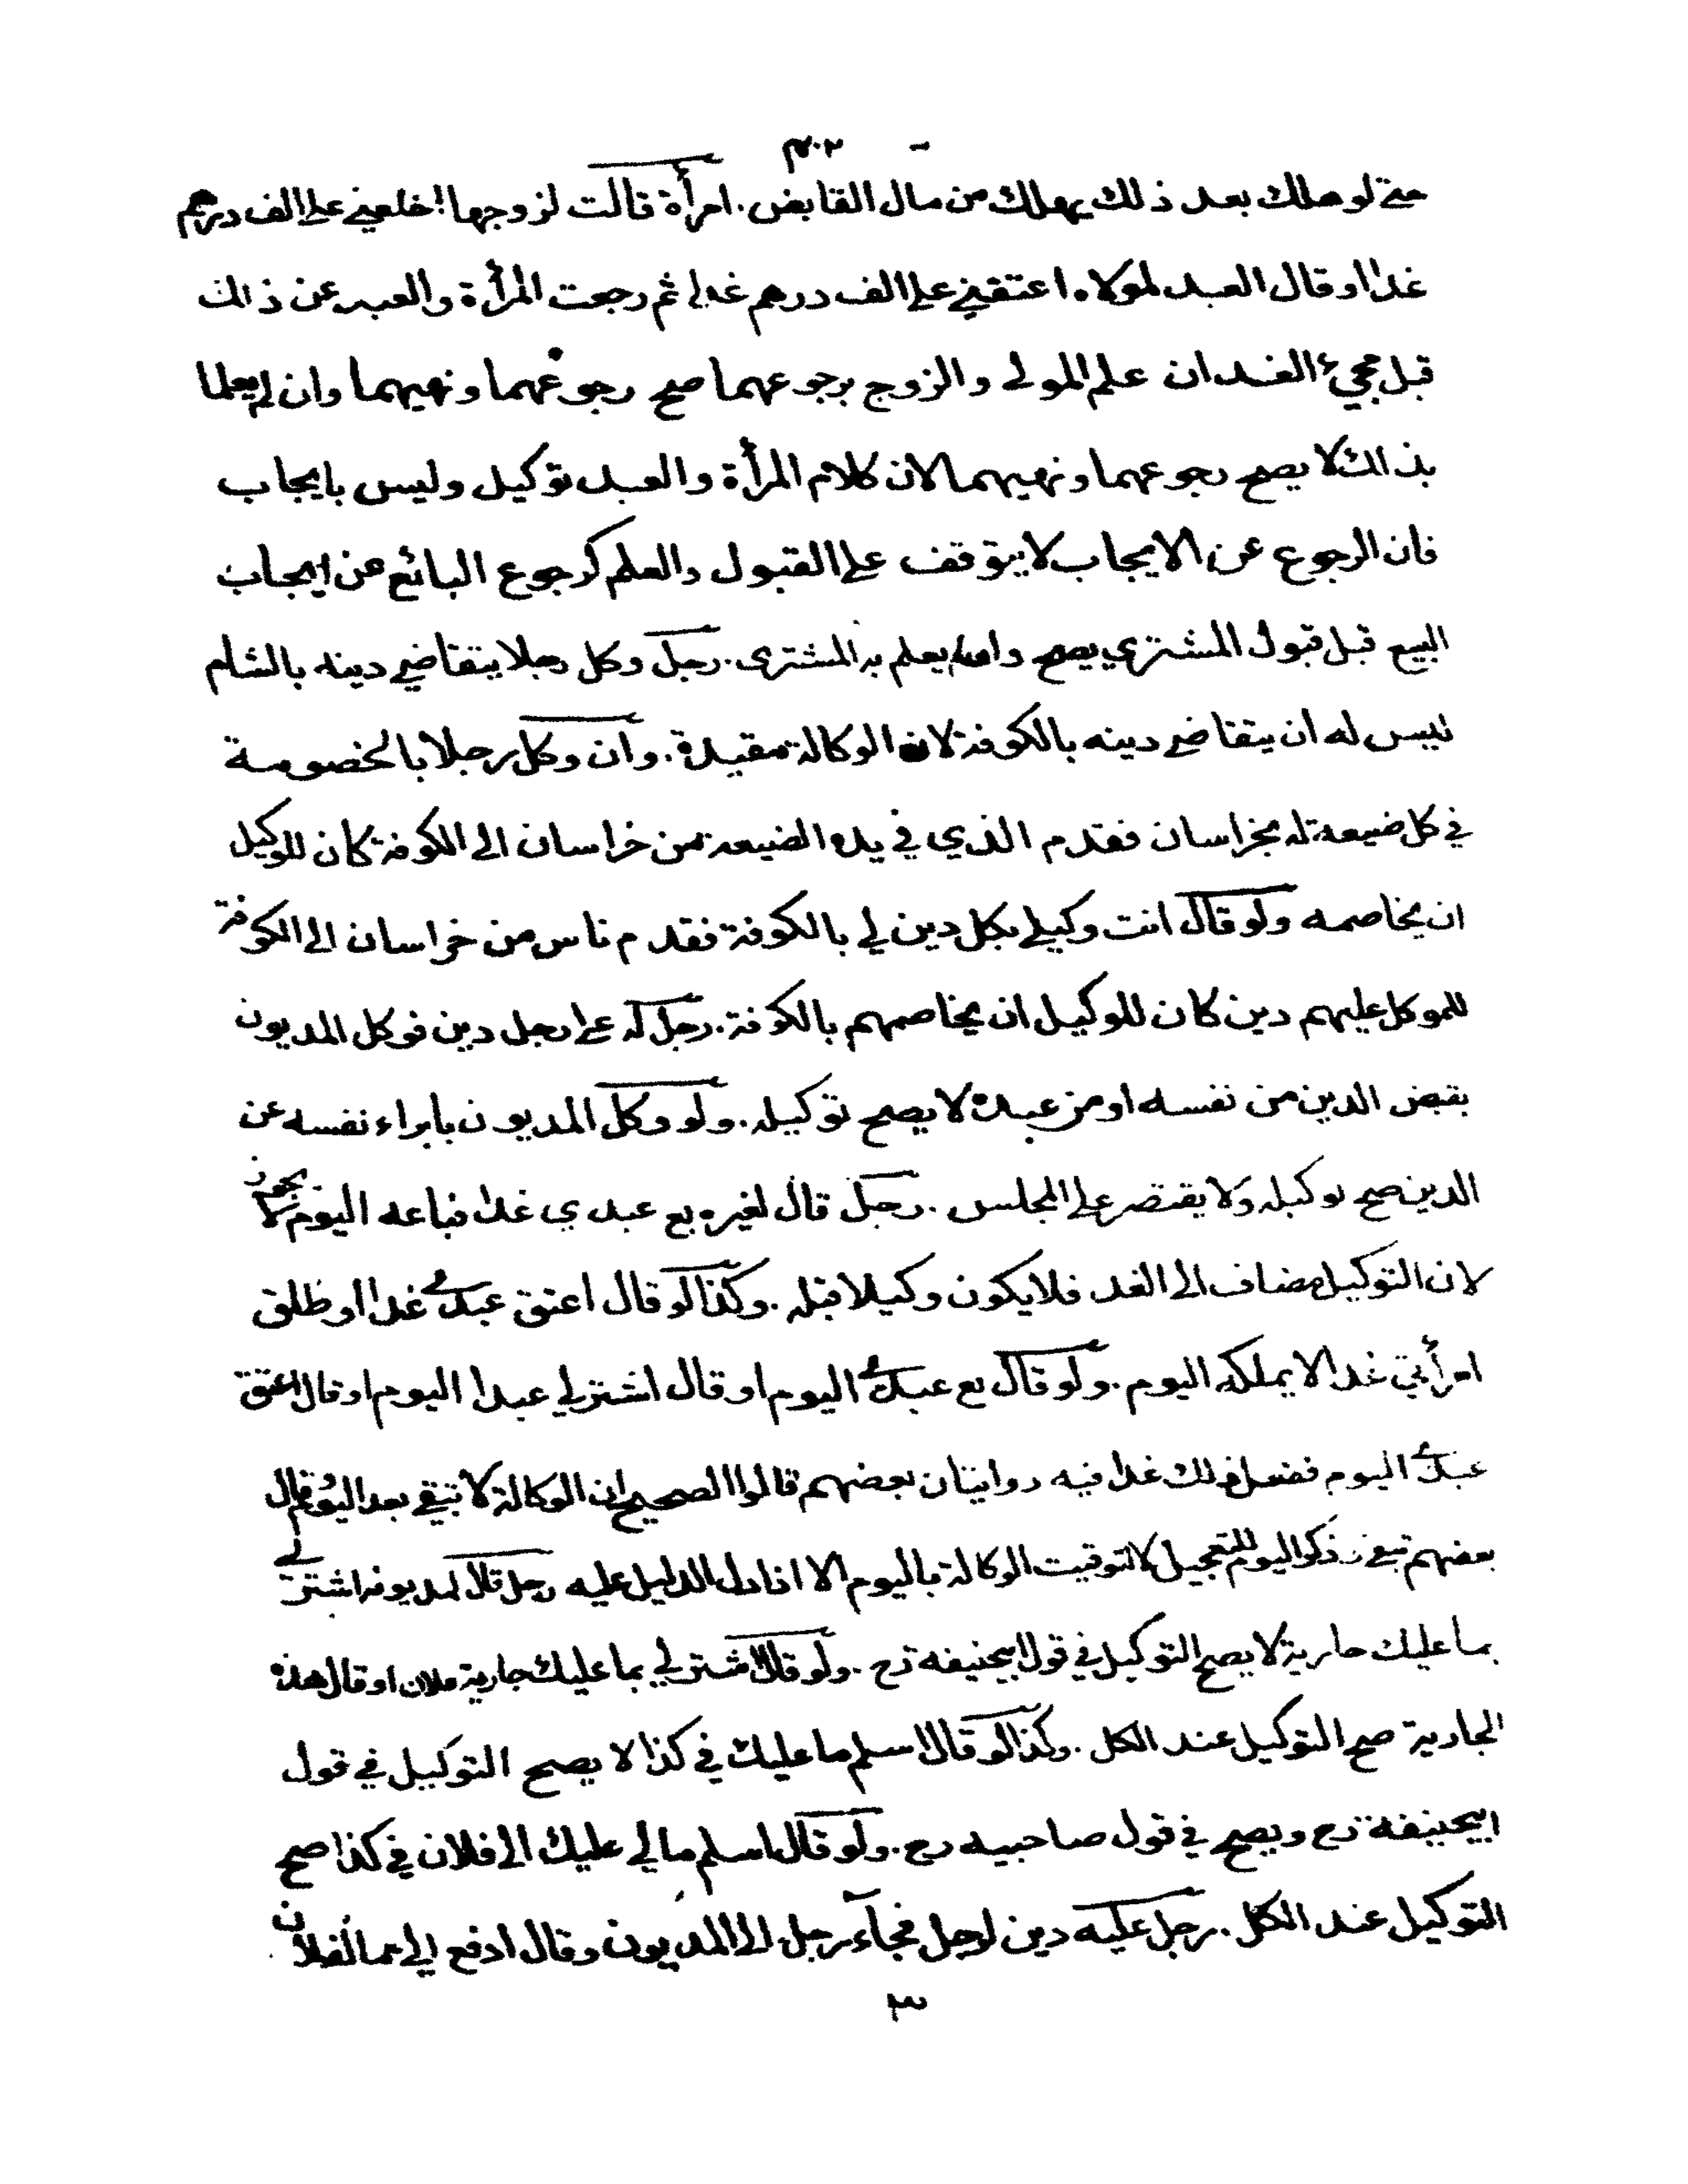 حتى لو هلك بعد ذلك يهلك من مال القابض. امرأة قالت لزوجها اخلعني على الف درهم
غدا او قال العبد لمولاه اعتقني على الف درهم غدا ثم رجعت المرأة والعبد عن ذلك
قبل مجيء الغد ان علم المولى والزوج برجوعهما صح رجوعهما ونهيهما وان لم يعلما
بذلك لا يصح رجوعهما ونهيهما لان كلام المرأة والعبد توكيل وليس بايجاب
فان الرجوع عن الايجاب لا يتوقف على القبول والعلم كرجوع البائع عن ايجاب
البيع قبل قبول المشتري يصح وان لم يعلم به المشترى. رجل وكل رجلا بتقاضي دينه بالشام
ليس له ان يتقاضى دينه بالكوفة لان الوكالة مقيدة. وان وكل رجلا بالخصومة
في كل ضيعة له بخراسان فقدم الذي في يده الضيعة من خراسان الى الكوفة كان للوكيل
ان يخاصمه ولو قال انت وكيلي بكل دين لي بالكوفة فقدم ناس من خراسان الى الكوفة
للموكل عليهم دين كان للوكيل ان يخاصمهم بالكوفة. رجل له على رجل دين فوكل المديون
بقبض الدين من نفسه او من عبده لا يصح توكيله. ولو وكل المديون بابراء نفسه عن
الدين صح توكيله ولا يقتصر على المجلس. رجل قال لغيره بع عبدي غدا فباعه اليوم لا يجوز
لان التوكيل مضاف الى الغد فلا يكون وكيلا قبله. وكذا لو قال اعتق عبدي غدا او طلق
امرأتي غدا لا يملكه اليوم. ولو قال بع عبدي اليوم او قال اشتر لي عبدا اليوم او قال اعتق
عبدي اليوم ففعل ذلك غدا فيه روايتان بعضهم قالوا الصحيح ان الوكالة لا تبقى بعد اليوم قال
بعضهم تبقى ذكر اليوم للتعجيل لا لتوقيت الوكالة باليوم الا اذا دل الدليل عليه رجل قال لمديونه اشتر لي
بما عليك جارية لا يصح التوكيل في قول ابيحنيفة رح. ولو قال اشتر لي بما عليك جارية فلان او قال هذه
الجارية صح التوكيل عند الكل. وكذا لو قال اسلم ما عليك في كذا لا يصح التوكيل في قول
ابيحنيفة رح ويصح في قول صاحبيه رح. ولو قال اسلم ما لي عليك الى فلان في كذا صح
التوكيل عند الكل. رجل عليه دين لرجل فجاء رجل الى المديون وقال ادفع الي ما لفلان
٣